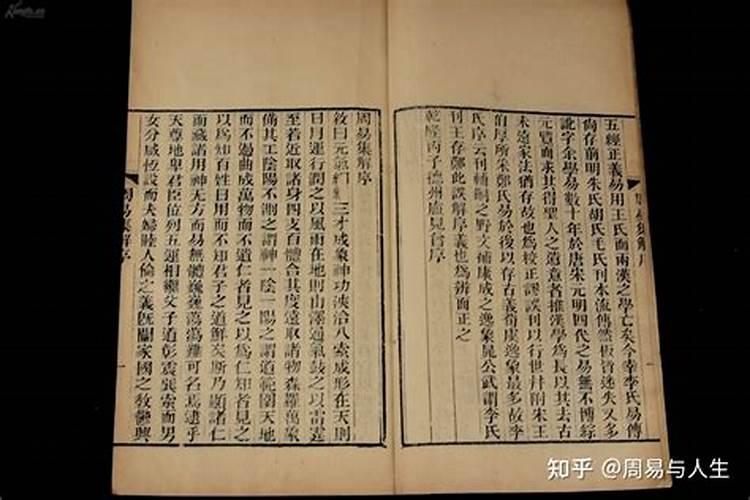 五經正義易用王氏而兩漢之學亡矣今幸李氏易傳
尙存前明朱氏胡氏毛氏刊本流傳然板皆迷失又多
訛字余學易數十年於唐宋元明四代之易無不博綜
元覽而求其得聖人之遺意者推漢學爲長以其去古
未遠家法猶存故也爲校正謬誤刊以行世幷附朱王
伯厚所朱鄭氏易於後以存古義荀虞逸象最多故李
氏序云刊輔嗣之野文補康成之逸象晁公武謂李氏
刊王存鄭此誤解序義也爲辨而正之
乾隆丙子德州盧見曾序
周易集解序
周易集解序
敘曰元氣絪縕三才成象神功浹洽八索成形在天則
日月運行潤之以風雨在地則山澤通氣鼓之以雷霆
至若近取諸身四支百體合其度遠取諸物森羅萬象
備其工陰陽不測之謂神一陰一陽之謂道範圍天地
而不過曲成萬物而不遺仁者見之以爲仁知者見之
以爲知百姓日用而不知君子之道鮮矣斯乃顯諸仁
而藏諸用神无方而易無體巍巍蕩蕩難可名焉逮乎
天尊地卑君臣位列五運相繼父子道彰震巽索而男
女分咸恆設而夫婦睦人倫之義旣闡家國之敎鬱興
周易集解序
知乎 @周易与人生